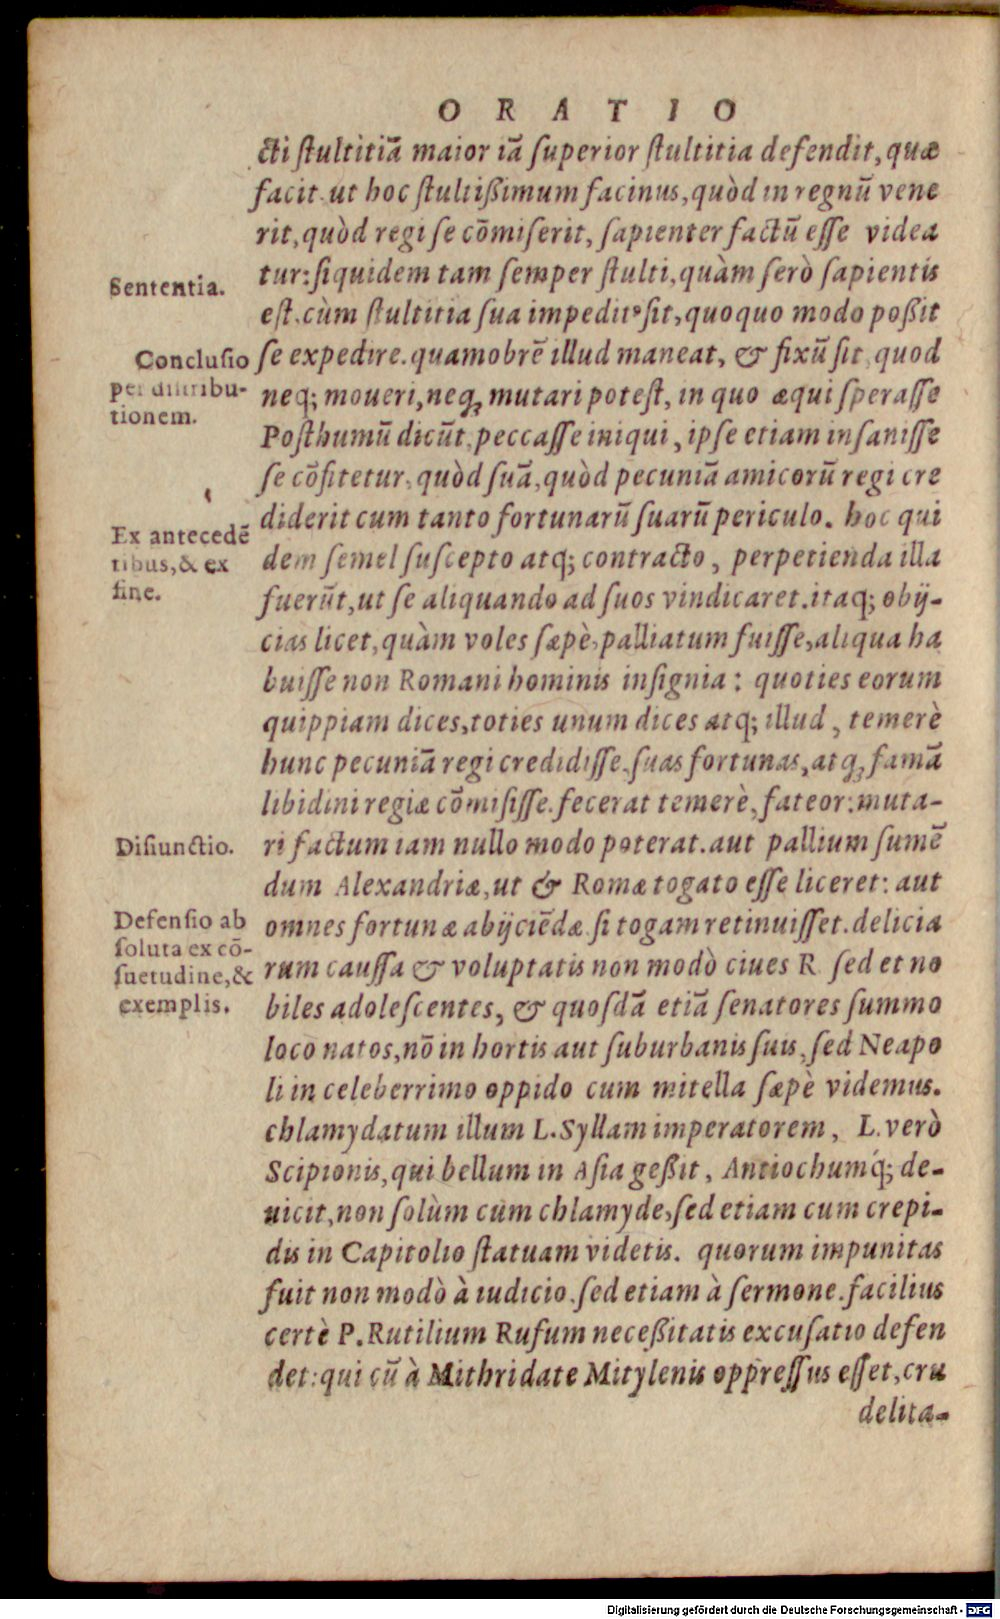 ORATIO
cti ſtultitiā maior iā ſuperior ſtultitia defendit, quæ
facit ut hoc ſtultißimum facinus, quòd in regnū vene
rit, quòd regi ſe cōmiſerit, ſapienter factū eſſe videa
tur: ſiquidem tam ſemper ſtulti, quàm ſerò ſapientis
Sententia.
eſt, cùm ſtultitia ſua impeditꝰ ſit, quoquo modo poßit
ſe expedire. quamobrē illud maneat, & fixū ſit, quod
neq; moueri, neq; mutari poteſt, in quo æqui ſperaſſe
Conclusio
per diſtribu-
tionem.
Poſthumū dicūt, peccaſſe iniqui, ipſe etiam inſaniſſe
ſe cōfitetur, quòd ſuā, quòd pecuniā amicorū regi cre
diderit cum tanto fortunarū ſuarū periculo. hoc qui
dem ſemel ſuſcepto atq; contracto, perpetienda illa
fuerūt, ut ſe aliquando ad ſuos vindicaret. itaq; obij-
Ex antecedē
tibus, & ex
fine.
cias licet, quàm voles ſæpè, palliatum fuiſſe, aliqua ha
buiſſe non Romani hominis inſignia: quoties eorum
quippiam dices, toties unum dices atq; illud, temerè
hunc pecuniā regi credidiſſe, ſuas fortunas, atq; famā
libidini regiæ cōmiſiſſe. fecerat temerè, fateor: muta-
ri factum iam nullo modo poterat. aut pallium ſumē
Diſiunctio.
dum Alexandriæ, ut & Romæ togato eſſe liceret: aut
omnes fortunæ abijciēdæ ſi togam retinuiſſet. delicia
rum cauſſa & voluptatis non modò ciues R. ſed et no
biles adoleſcentes, & quoſdā etiā ſenatores ſummo
Defenſio ab
ſoluta ex cō-
ſuetudine, &
exemplis.
loco natos, nō in hortis aut ſuburbanis ſuis, ſed Neapo
li in celeberrimo oppido cum mitella ſæpè videmus.
chlamydatum illum L. Syllam imperatorem, L. verò
Scipionis, qui bellum in Aſia geßit, Antiochumq́; de-
uicit, non ſolùm cum chlamyde, ſed etiam cum crepi-
dis in Capitolio ſtatuam videtis. quorum impunitas
fuit non modò à iudicio, ſed etiam à ſermone. facilius
certè P. Rutilium Rufum neceßitatis excuſatio defen
det: qui cū à Mithridate Mitylenis oppreſſus eſſet, cru
delita-
Digitalisierung gefördert durch die Deutsche Forschungsgemeinschaft - DFG